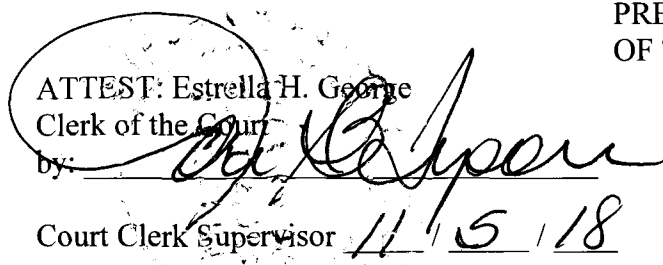 PRE
OF
ATTEST: Estrella H. George
Clerk of the Court
by:
Court Clerk Supervisor 11 / 5 / 18